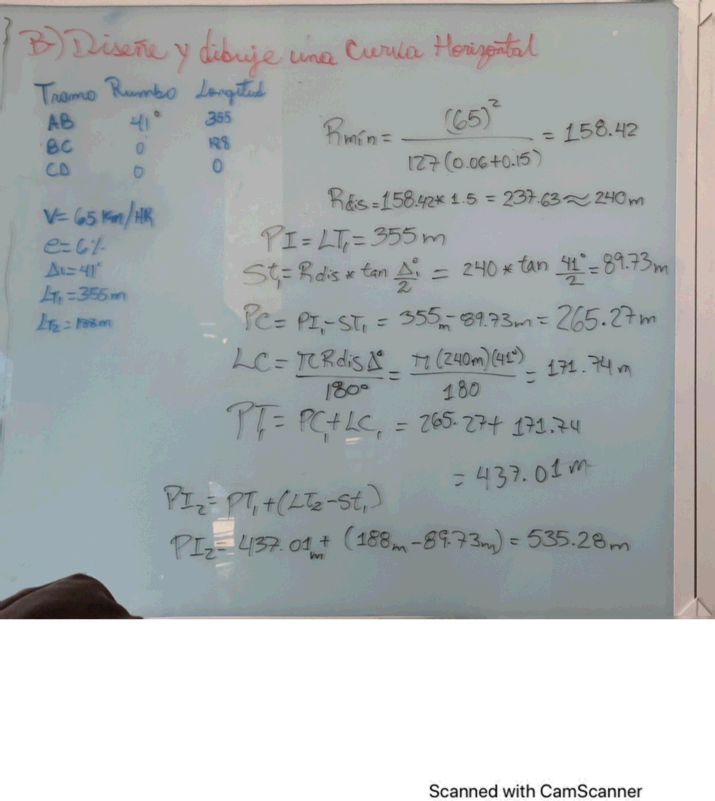 B) Diseñe y dibuje una Curva Horizontal
Tramo Rumbo Longitud
AB 41° 355
BC 0 188
CD 0 0
V= 65 Km/HR
e= 6%
Δ1= 41°
LT1 = 355m
LT2 = 188m
Rmín= (65)² / 127(0.06+0.15) = 158.42
Rdis=158.42* 1.5 = 237.63 ≈ 240m
PI = LT1 = 355 m
St1= Rdis * tan Δ1°/2 = 240 * tan 41°/2 = 89.73m
PC= PI1-ST1 = 355m-89.73m = 265.27m
LC= πRdisΔ°/180° = π(240m)(41°)/180 = 171.74 m
PT1= PC1+LC1 = 265.27+ 171.74
= 437.01m
PI2= PT1+(LT2-St1)
PI2= 437.01m + (188m-89.73m) = 535.28m
Scanned with CamScanner